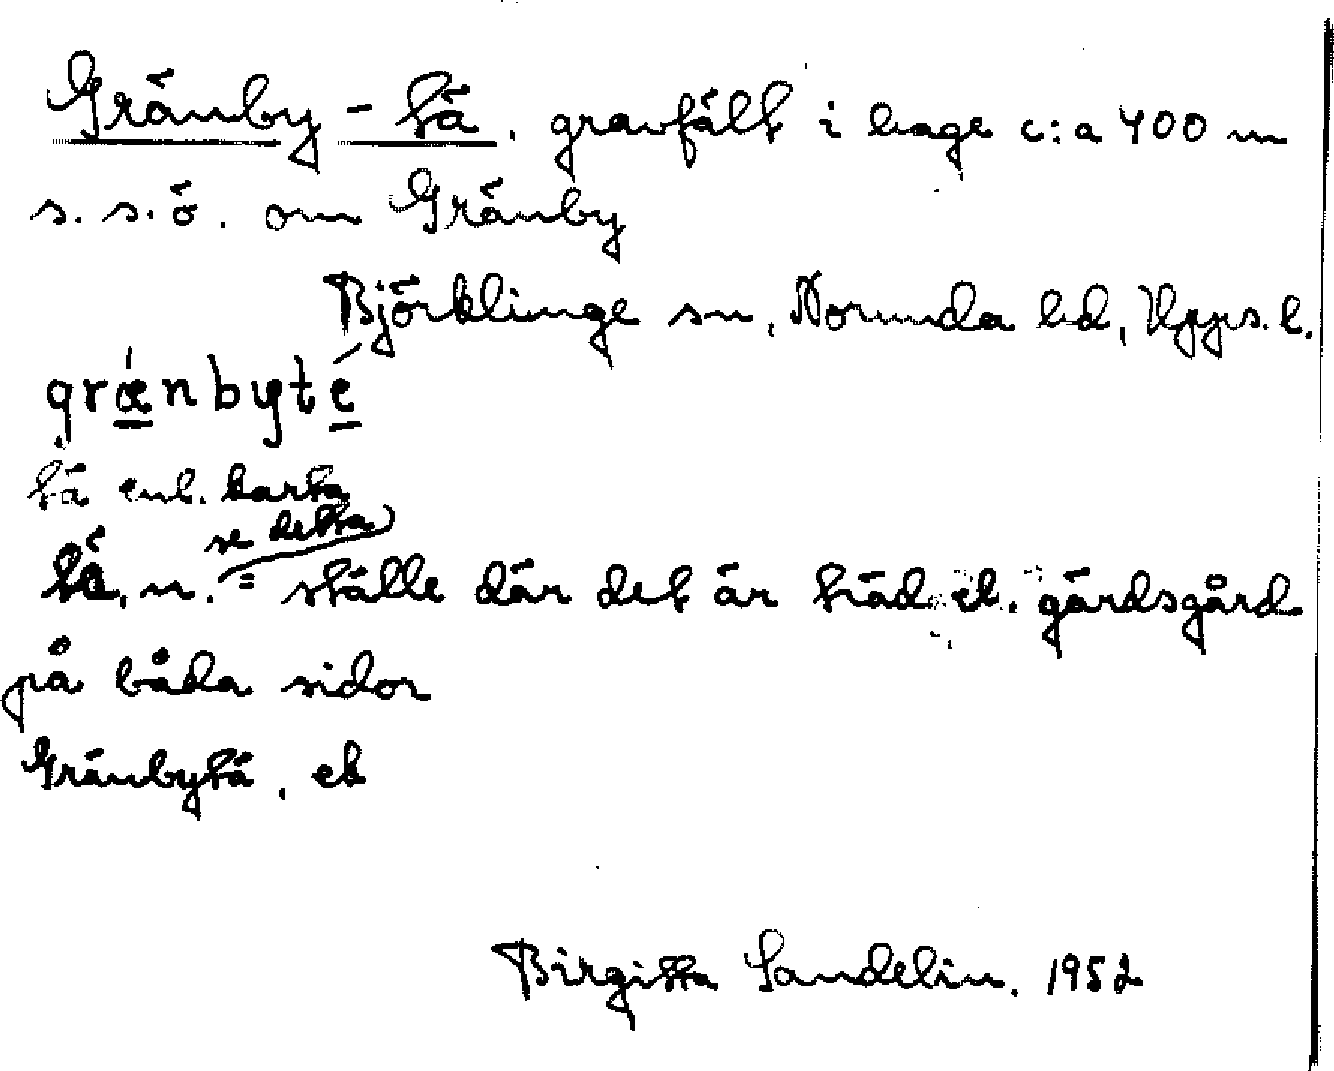 Gränby-tä, gravfält i hage c:a 400 m
s.s.ö. om Gränby
Björklinge sn, Norunda hd, Upps. l.
grǽ̲nbyté̲
tä enl. karta
se detta)
tä, n. = ställe där det är träd el. gärdsgård
på båda sidor
Gränbytä, ek
Birgitta Sandelin. 1952